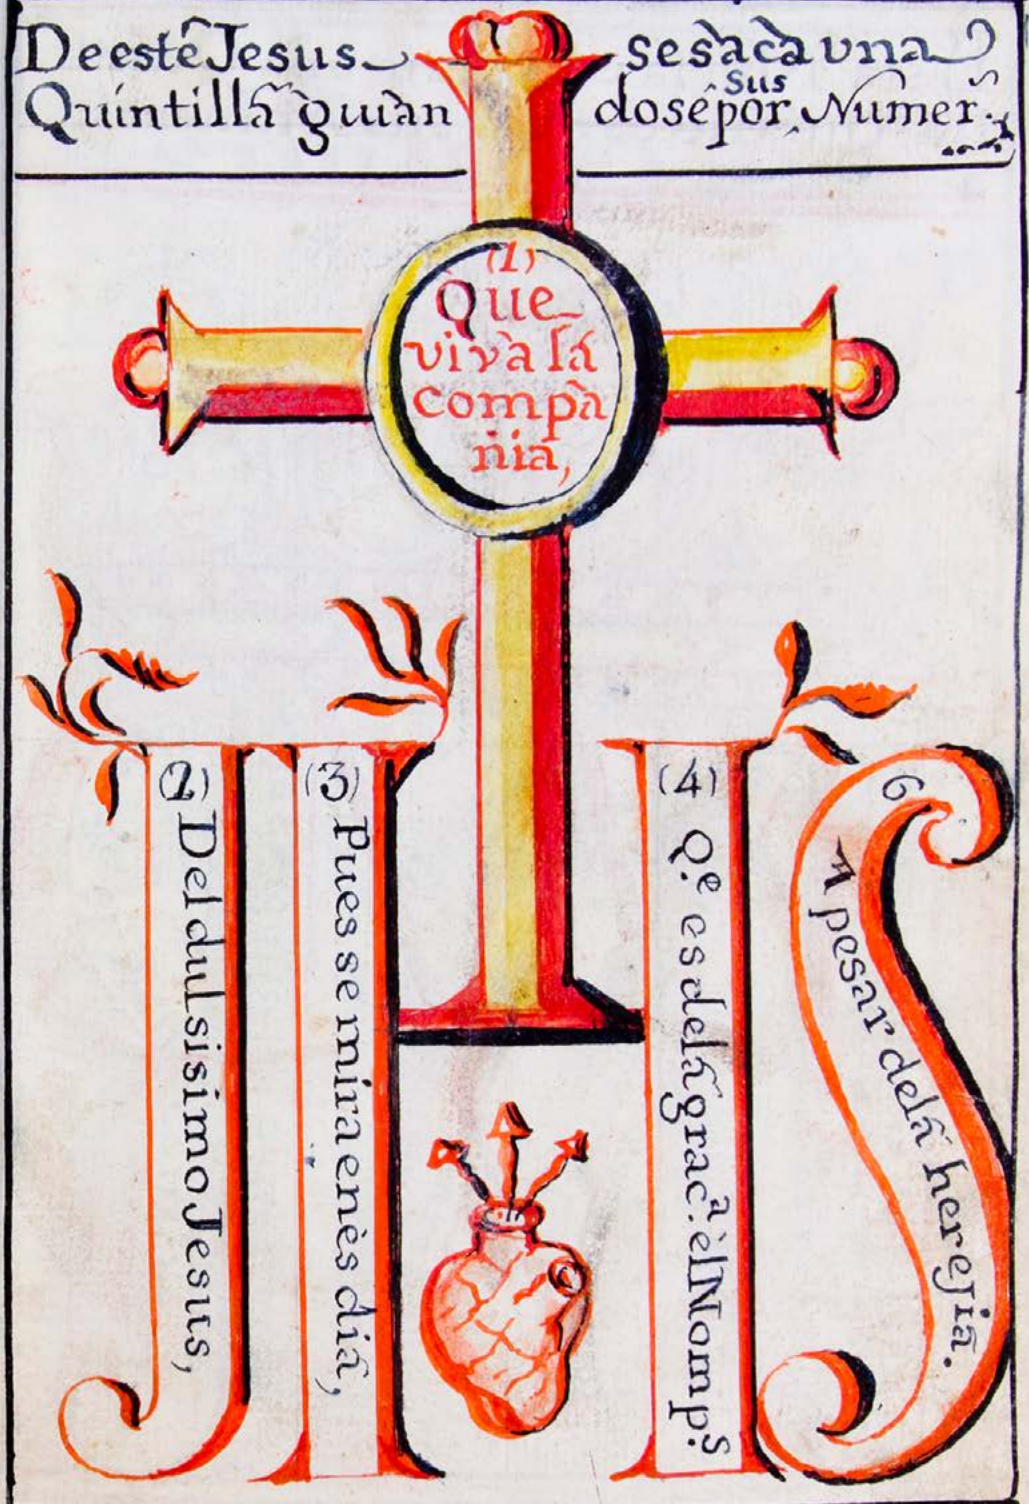 De estê Jesus sesàcà vna
Quintillá guiàn dosê por Sus Numer.ˢ
(1)
Que
vivà lá
compà
nia,
(2) Del dulsisimo Jesus,
(3) Pues se mira en ès diá,
(4) Q.ᵉ es de lá grac.ᵃ èl Nomp.ˢ
6 A pesar de lá herejia.